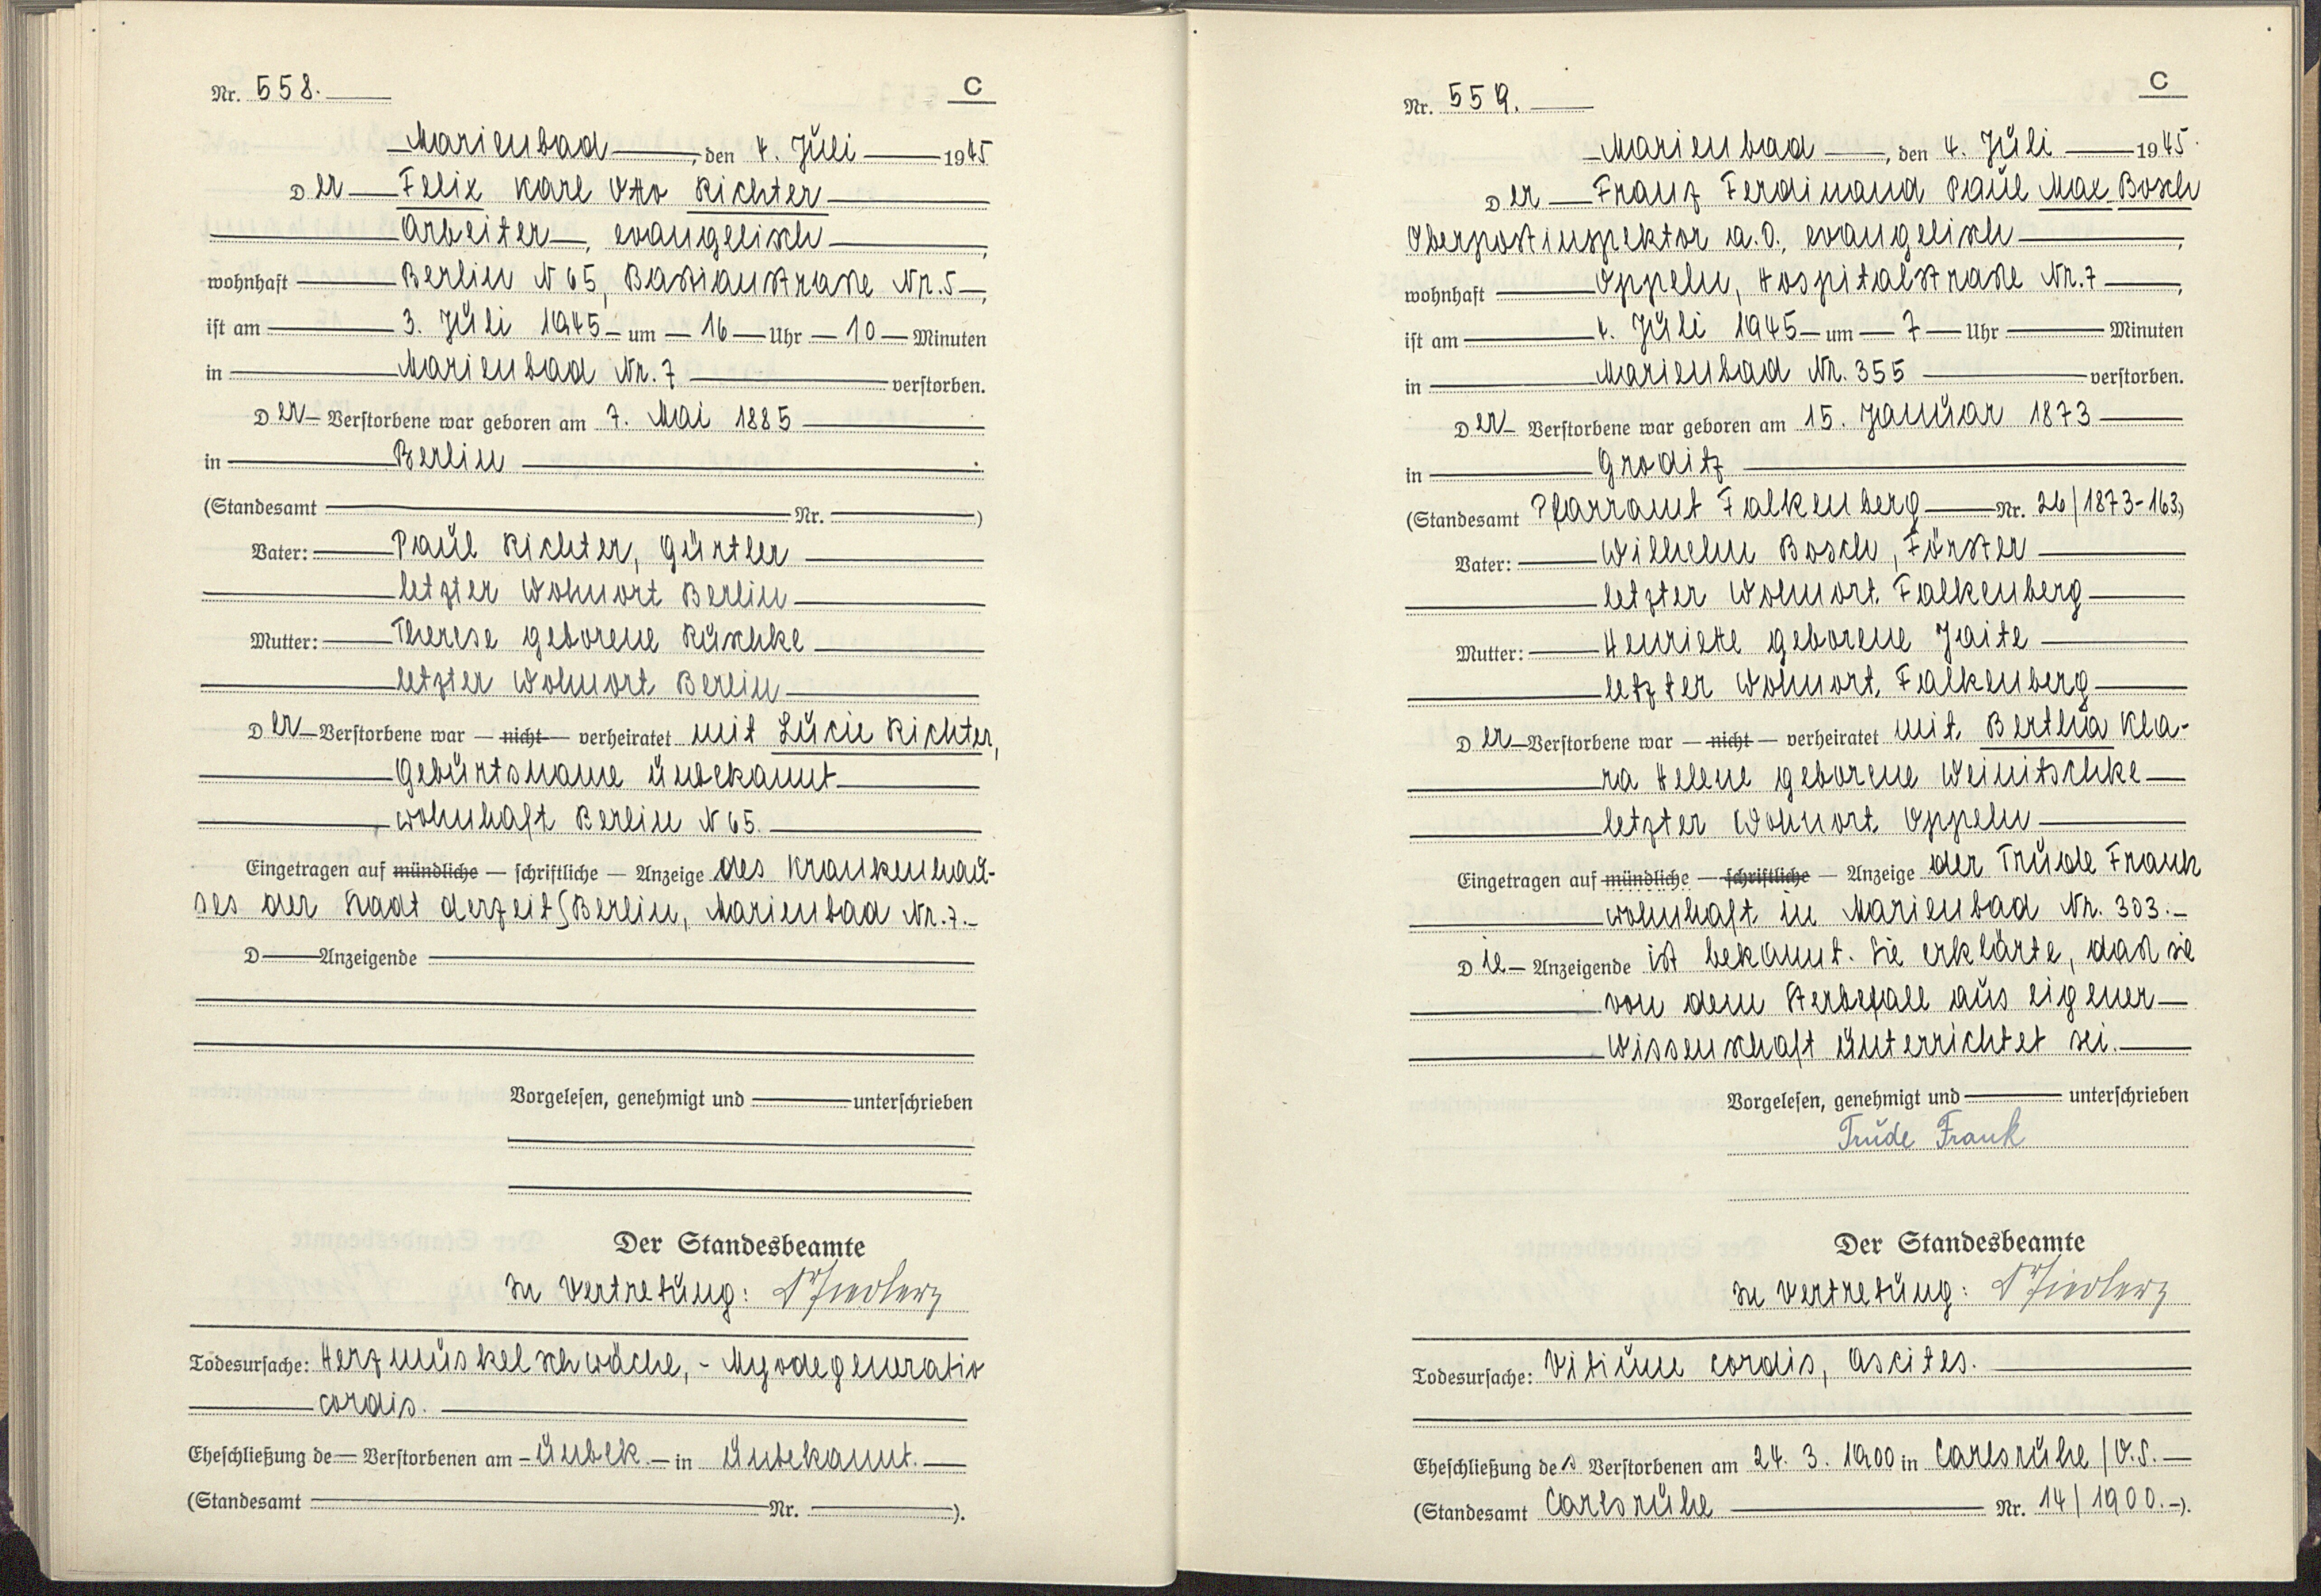 Nr. 558.
C
Marienbad, den 4. Juli 1945
Der Felix Karl Otto Richter
Arbeiter, evangelisch,
wohnhaft Berlin N 65, Bastianstraße Nr. 5,
ist am 3. Juli 1945 um 16 Uhr 10 Minuten
in Marienbad Nr. 7 verstorben.
Der Verstorbene war geboren am 7. Mai 1885
in Berlin.
(Standesamt Nr. )
Vater: Paul Richter, Gürtler
letzter Wohnort Berlin
Mutter: Therese geborene Ruschke
letzter Wohnort Berlin
Der Verstorbene war — nicht — verheiratet mit Lucie Richter,
Geburtsname unbekannt
wohnhaft Berlin N 65.
Eingetragen auf mündliche — schriftliche — Anzeige des Krankenhau-
ses der Stadt derzeit Berlin, Marienbad Nr. 7.
D Anzeigende
Vorgelesen, genehmigt und unterschrieben
Der Standesbeamte
In Vertretung:
Todesursache: Herzmuskelschwäche, - Myodegeneratio
cordis.
Eheschließung de Verstorbenen am unbek. in unbekannt.
(Standesamt Nr. ).
Nr. 559.
C
Marienbad, den 4. Juli 1945.
Der Franz Ferdinand Paul Max Bosch
Oberpostinspektor a.D., evangelisch,
wohnhaft Oppeln, Hospitalstraße Nr. 7,
ist am 4. Juli 1945 um 7 Uhr Minuten
in Marienbad Nr. 355 verstorben.
Der Verstorbene war geboren am 15. Januar 1873
in Groditz
(Standesamt Pfarramt Falkenberg Nr. 26/1873-163)
Vater: Wilhelm Bosch, Förster
letzter Wohnort Falkenberg
Mutter: Henriette geborene Jaite
letzter Wohnort Falkenberg
Der Verstorbene war — nicht — verheiratet mit Bertha Kla-
ra Helene geborene Weinitschke
letzter Wohnort Oppeln
Eingetragen auf mündliche — schriftliche — Anzeige der Trude Frank
wohnhaft in Marienbad Nr. 303.
Die Anzeigende ist bekannt. Sie erklärte, daß sie
von dem Sterbefall aus eigener
Wissenschaft unterrichtet sei.
Vorgelesen, genehmigt und unterschrieben
Trude Frank
Der Standesbeamte
In Vertretung:
Todesursache: Vitium cordis, Ascites.
Eheschließung des Verstorbenen am 24. 3. 1900 in Carlsruhe/O.S.
(Standesamt Carlsruhe Nr. 14/1900.).